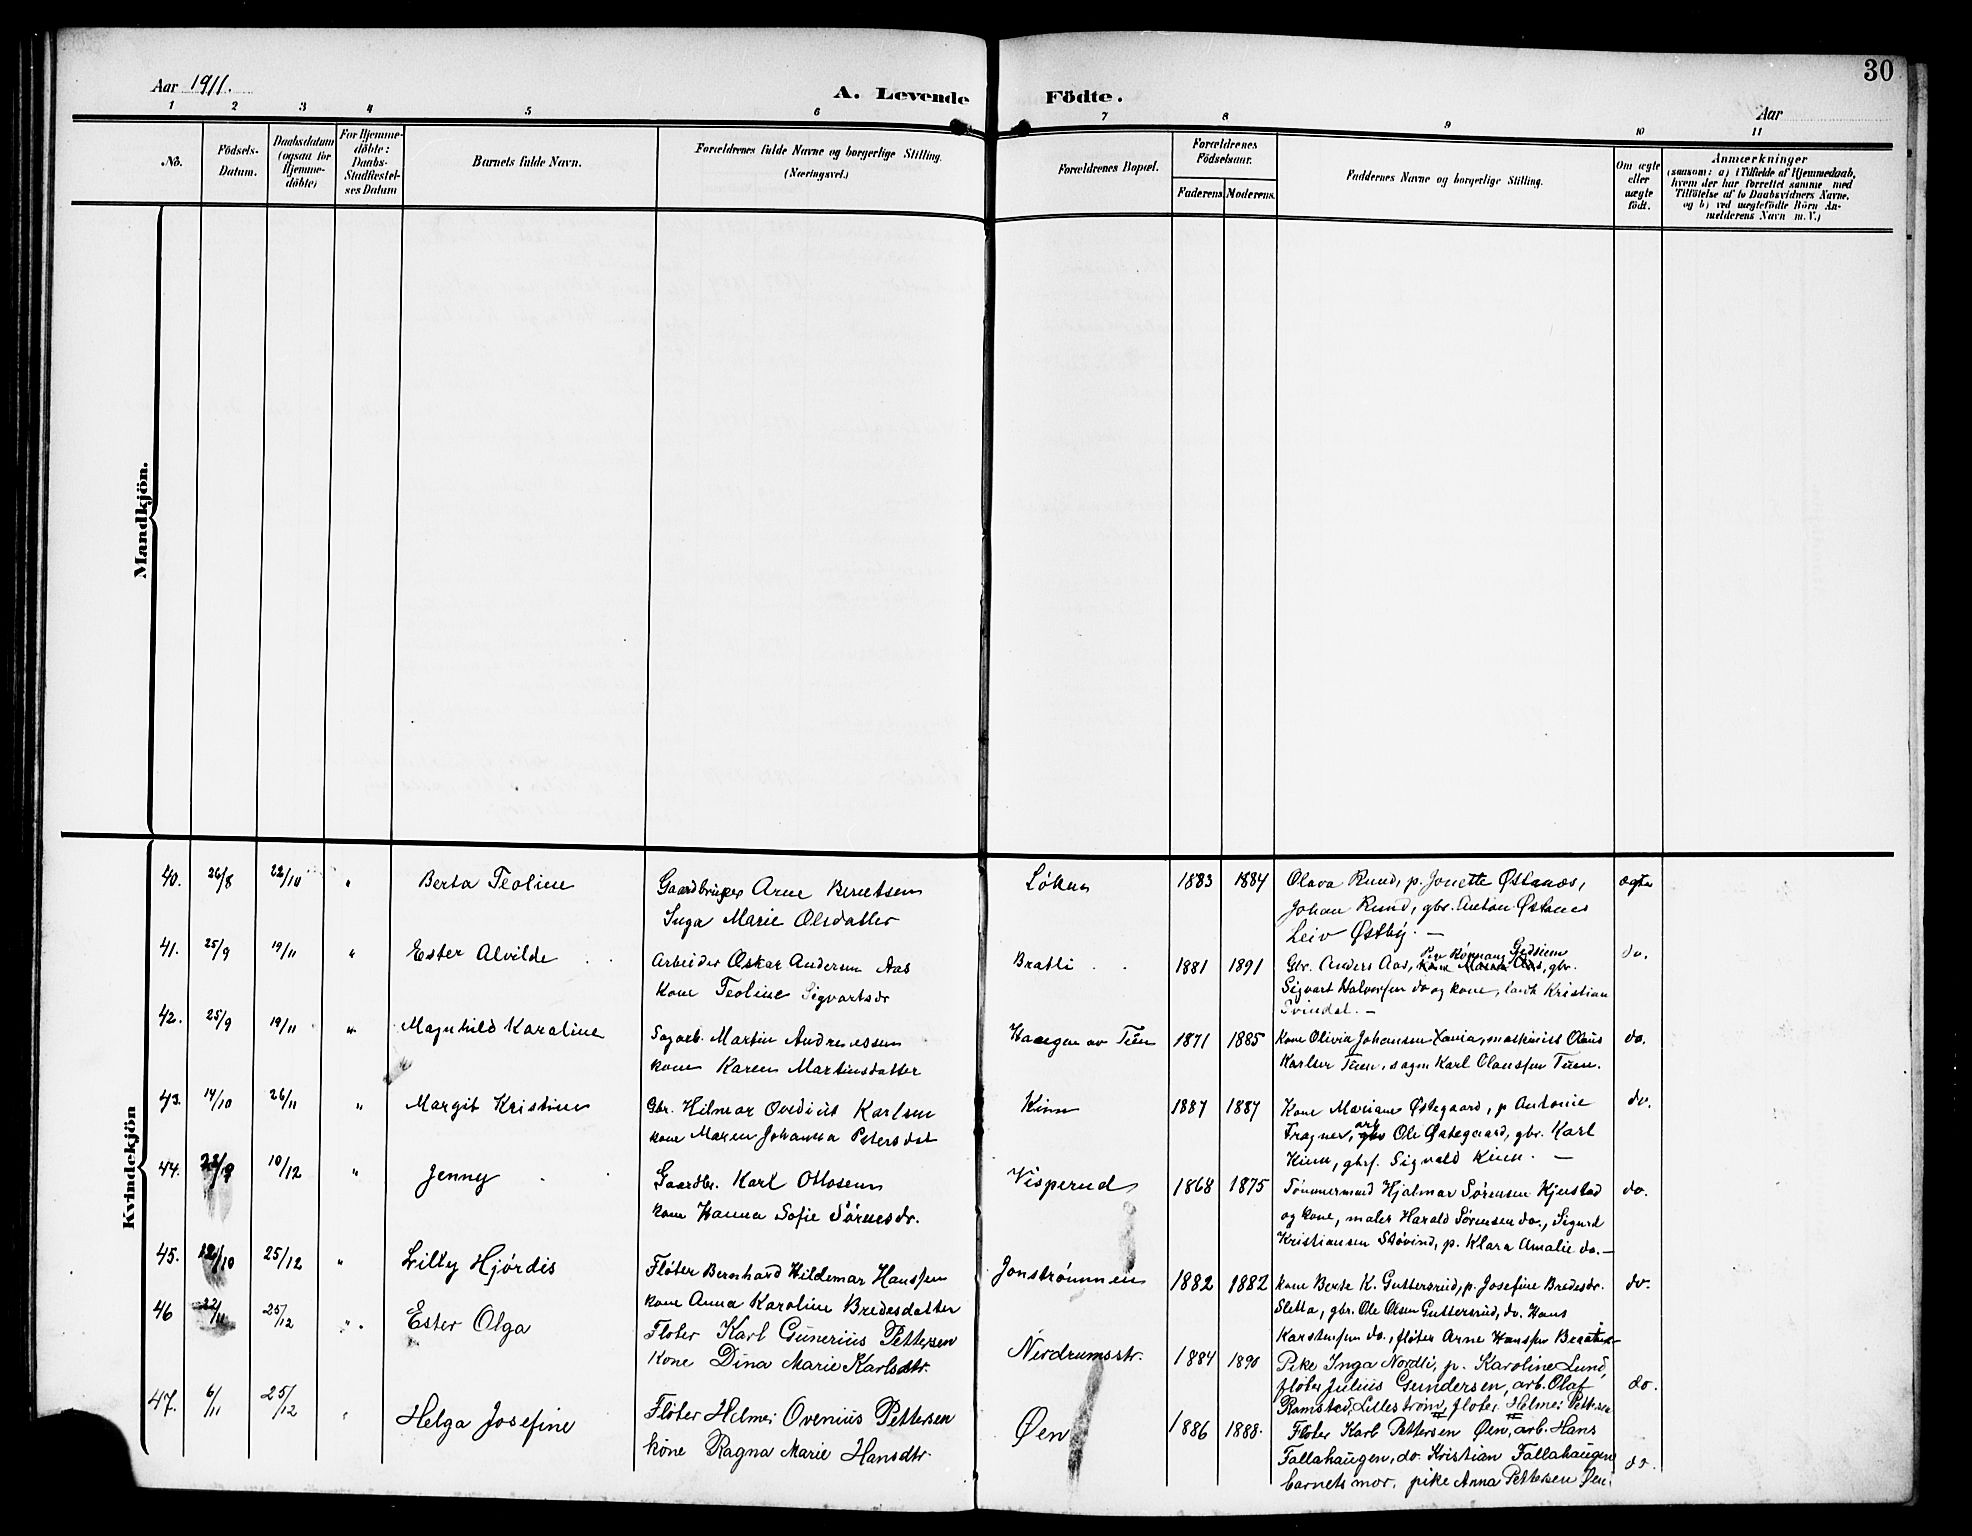 30
Aar 1911.
A. Levende Födte.
Aar
1 2 3 4 5 6 7 8 9 10 11
No.
Födsels-Datum.
Daabsdatum (ogsaa for Hjemme-döbte)
For Hjemme-döbte: Daabs-Stadfæstel-ses Datum
Barnets fulde Navn.
Forældrenes fulde Navne og borgerlige Stilling. (Næringsvei.)
Forældrenes Bopæl.
Forældrenes Födselsaar.
Faderens. Moderens.
Faddernes Navne og borgerlige Stilling.
Om ægte eller uægte födt.
Anmærkninger
(saasom: a) i Tilfælde af Hjemmedaab,
hvem der har forrettet samme med
Tilföielse af to Daabsvidners Navne,
og b) ved uægtefödte Börn An-
melderens Navn m. V.)
Mandkjön.
Kvindekjön
40. 26/8 22/10 " Berta Teoline Gaardbruger Arne Berntsen Løken 1883 1884 Olava Rund, p. Jonette Østanæs, ægte
Inga Marie Olsdatter Johan Rund, gbr. Anton Østanes
Leiv Østby. —
41. 25/9 19/11 " Ester Alvilde Arbeider Oskar Andersen Aas Bratli 1881 1891 Gbr. Anders Aas, gbr. do.
kone Teoline Sigvartsdr Sigvart Halvorsen do og kone, landh Kristian
Svindal. —
42. 25/9 19/11 " Magnhild Karoline Sagarb. Martin Andreassen Haugen av Tuen 1871 1885 Kone Olivia Johansen Xania, maskinist Olaus do.
kone Karen Martinsdatter Karlsen Tuen, sagm Karl Olaussen Tuen.
43. 14/10 26/11 " Margit Kristine Gbr. Hilmar Ovedius Karlsen Kinn 1887 1887 Kone Mariane Østegaard, p Antonie do.
kone Maren Johanna Petersdat Fragner, arb Ole Østegaard, gbr. Karl
Kinn, gbrs. Sigvald Kinn. —
44. 10/12 " Jenny Gaardbr. Karl Ottosen Visperud 1868 1875 Tømmermand Hjalmar Sørensen Kjerstad do.
kone Hanna Sofie Sørensdr. og kone, maler Harald Sørensen do., Sigurd
Kristiansen Støvind, p. Klara Amalie do. —
45. 25/12 " Lilly Hjørdis Fløter Bernhard Hildemar Hanssen Jonstrømmen 1882 1882 kone Berte K. Guttersrud, p. Josefine Bredesdr. do.
kone Anna Karoline Bredesdatter Sletta, gbr. Ole Olsen Guttersrud, do. Hans
Karstensen do., fløter Arne Hanssen
46 22/11 25/12 " Ester Olga Fløter Karl Gunerius Pettersen Nerdrumsstr. 1884 1890 Pike Inga Nordli, p. Karoline Lund,
Kone Dina Marie Karlsdtr. fløter Julius Gundersen, arb. Olaf do.
Ramstad, Lillestrøm, fløter Helmer Pettersen
47. 6/11 25/12 " Helga Josefine Fløter Helmer Ovenius Pettersen Øen 1886 1888. Fløter Karl Pettersen Øen, arb. Hans
Kone Ragna Marie Hansdtr. Fallahaugen, do. Kristian Fallahaugen do.
barnets mor, pike Anna Pettersen Øen.